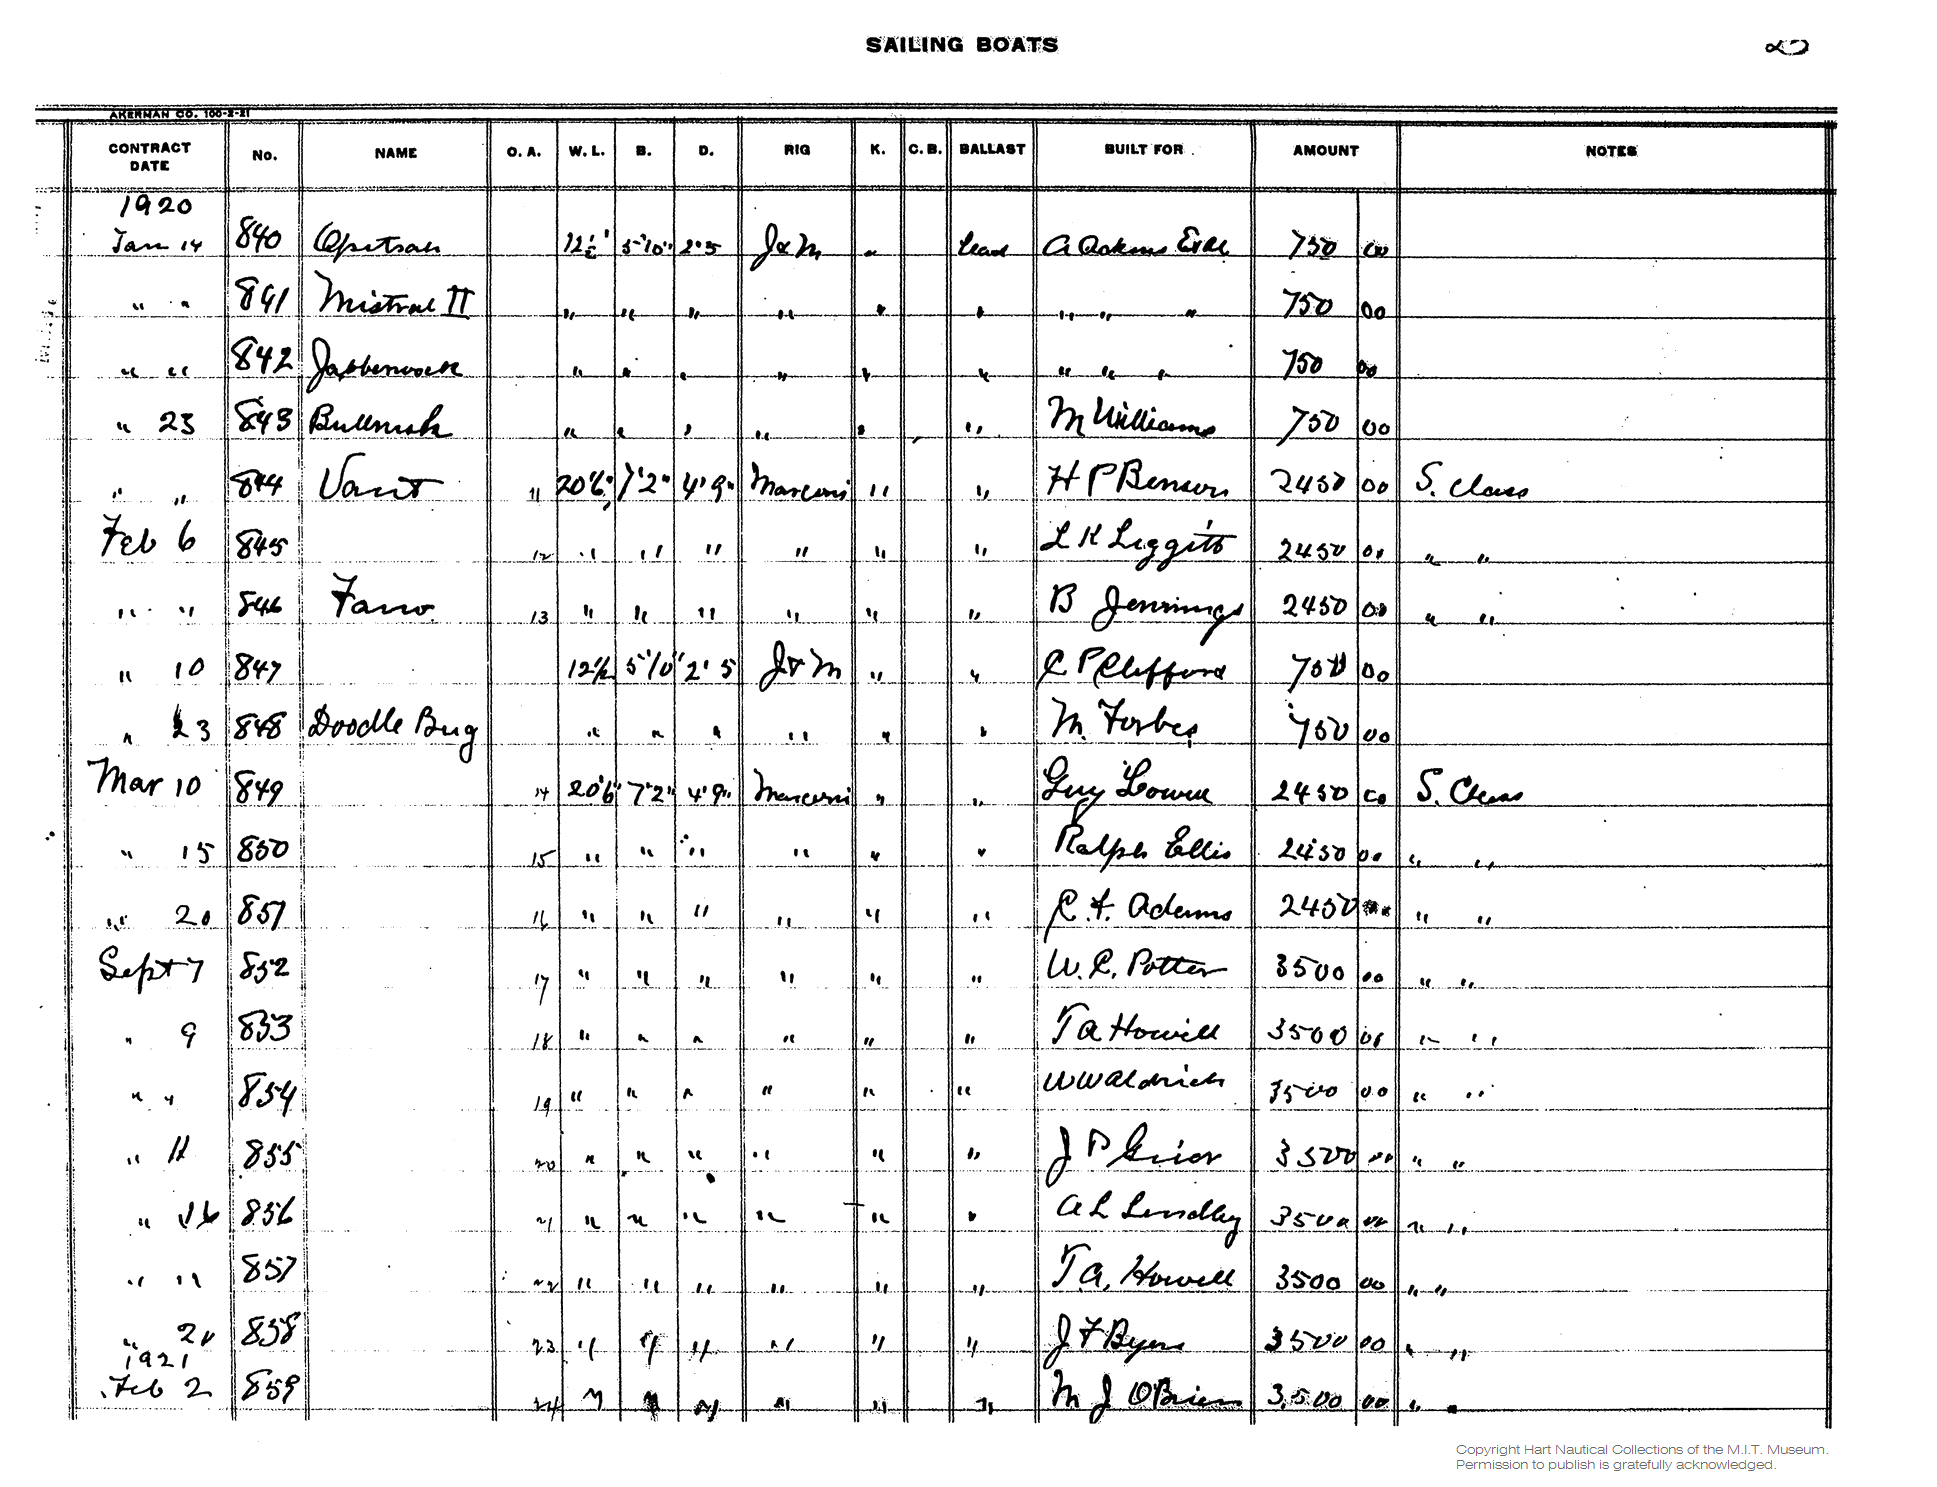 SAILING BOATS
AKERMAN CO. 100-2-21
CONTRACT DATE No. NAME O. A. W. L. B. D. RIG K. C. B. BALLAST BUILT FOR AMOUNT NOTES
1920
Jan 14 840 12½' 5'10" 2'5 J & M " Lead 750 00
" " 841 Mistral II " " " " " " " " " 750 00
" " 842 " " " " " " " " " 750 00
" 23 843 " " " " " " M Williams 750 00
" " 844 11 20'6" 7'2" 4'9" Marconi " " H P Benson 2450 00 S. Class
Feb 6 845 12 " " " " " " L K Liggitt 2450 00 " "
" " 846 13 " " " " " " B Jennings 2450 00 " "
" 10 847 12½ 5'10" 2'5 J & M " " C P Clifford 750 00
" 23 848 Doodle Bug " " " " " " M. Forbes 750 00
Mar 10 849 14 20'6" 7'2" 4'9" Marconi " " Guy Lowell 2450 00 S. Class
" 15 850 15 " " " " " " Ralph Ellis 2450 00 " "
" 20 851 16 " " " " " " C. F. Adams 2450 " "
Sept 7 852 17 " " " " " " W. C. Potter 3500 00 " "
" 9 853 18 " " " " " " T A Howell 3500 00 " "
" " 854 19 " " " " " " W W Aldrich 3500 00 " "
" 11 855 20 " " " " " " J P Grier 3500 00 " "
" 16 856 21 " " " " " " A L Lindley 3500 00 " "
" " 857 22 " " " " " " T. A. Howell 3500 00 " "
" 20 858 23 " " " " " " J F Byers 3500 00 " "
1921
Feb 2 859 24 " " " " " " M J O'Brien 3500 00 " "
Copyright Hart Nautical Collections of the M.I.T. Museum.
Permission to publish is gratefully acknowledged.